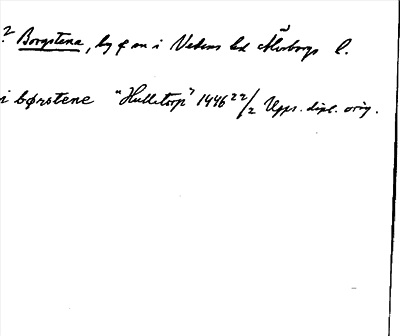 ? Borgstena, by o sn i Vedens hd Älvsborgs l.
i børstene "Hulletorp" 1446 22/2 Upps. dipl. orig.